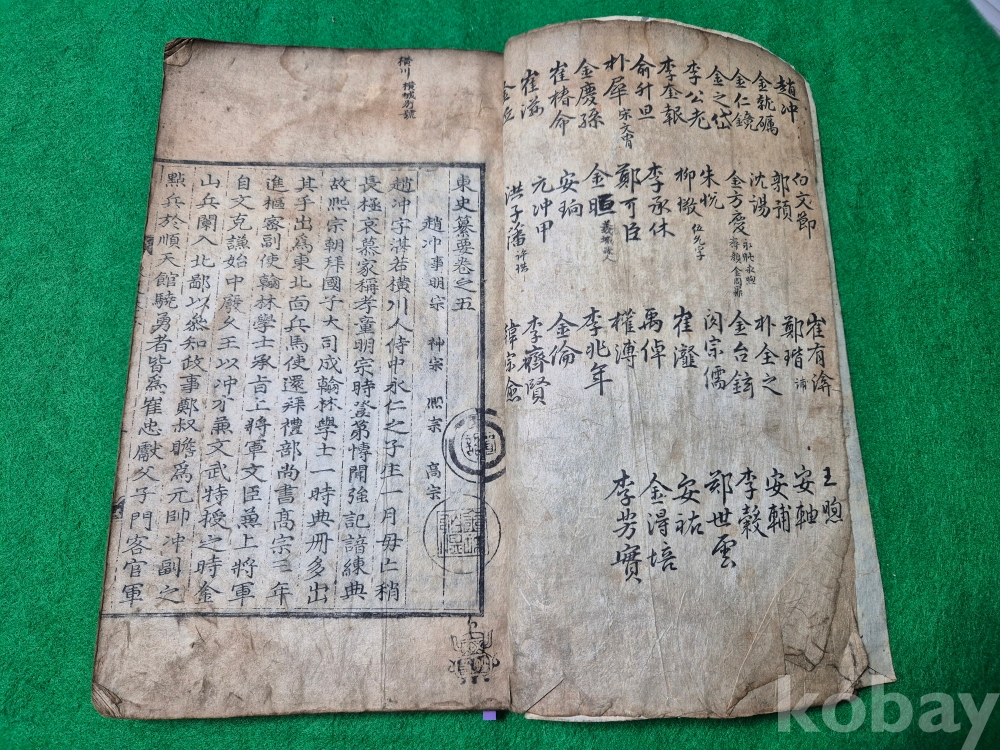 趙冲
金就礪
金仁鏡
金之岱
李公老
李奎報
俞升旦
朴犀 宋文冑
金慶孫
崔椿命
崔滋
白文節
郭預
沈湯
金方慶
朱悦
柳璥
李承休
鄭可臣
金晅
安珦
元冲甲
洪子藩 許珙
崔有渰
鄭瑎
朴全之
金台鉉
閔宗儒
崔瀣
禹倬
權溥
李兆年
金倫
李齊賢
韓宗愈
王煦
安軸
安輔
李穀
鄭世雲
安祐
金得培
李芳實
橫川 橫城別號
東史纂要卷之五
趙冲 事明宗 神宗 熙宗 高宗
趙冲字湛若橫川人侍中永仁之子生一月母亡稍
長極哀慕家稱孝童明宗時登第慱聞強記諳練典
故熙宗朝拜國子大司成翰林學士一時典冊多出
其手出爲東北面兵馬使還拜禮部尚書高宗三年
進樞密副使翰林學士承旨上將軍文臣兼上將軍
自文克謙始中廢久王以冲才兼文武特授之時金
山兵闌入北鄙以叅知政事鄭叔瞻爲元帥冲副之
點兵於順天館驍勇者皆爲崔忠獻父子門客官軍
kobay